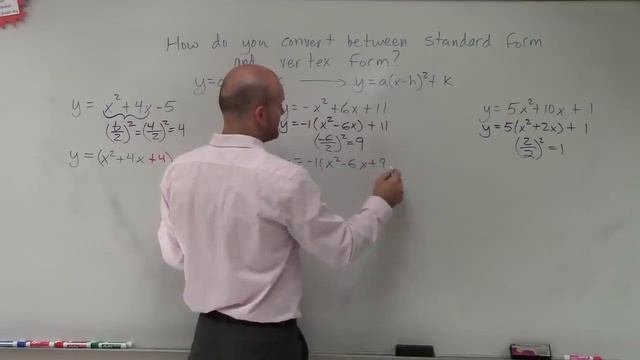 How do you convert between standard form
and vertex form?
y=a → y=a(x-h)²+k
y = x²+4x-5
(b/2)²=(4/2)²=4
y=(x²+4x+4)
y=-x²+6x+11
y=-1(x²-6x)+11
(-6/2)²=9
=-1(x²-6x+9
y=5x²+10x+1
y=5(x²+2x)+1
(2/2)²=1